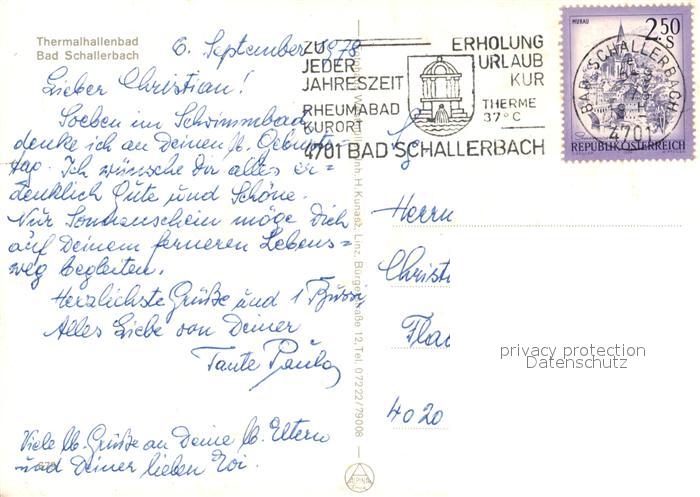 Thermalhallenbad
Bad Schallerbach
6. September 1978
Lieber Christian!
Soeben im Schwimmbad,
denke ich an Deinen lb. Geburts-
tag. Ich wünsche Dir alles er=
denklich Gute und Schöne.
Nur Sonnenschein möge Dich
auf Deinem ferneren Lebens=
weg begleiten.
Herzlichste Grüße und 1 Bussi
Alles Liebe von Deiner
Tante Paula
Viele lb. Grüße an Deine lb. Eltern
und Deiner lieben
ZU
JEDER
JAHRESZEIT
RHEUMABAD
KURORT
4701 BAD SCHALLERBACH
ERHOLUNG
URLAUB
KUR
THERME
37° C
MURAU
2.50
S
BAD SCHALLERBACH
4701
REPUBLIK ÖSTERREICH
Inh. H. Kunasz, Linz, Bürgerstraße 12, Tel. 07222/79008
ALPINA
Herrn
Christi
4020
privacy protection
Datenschutz